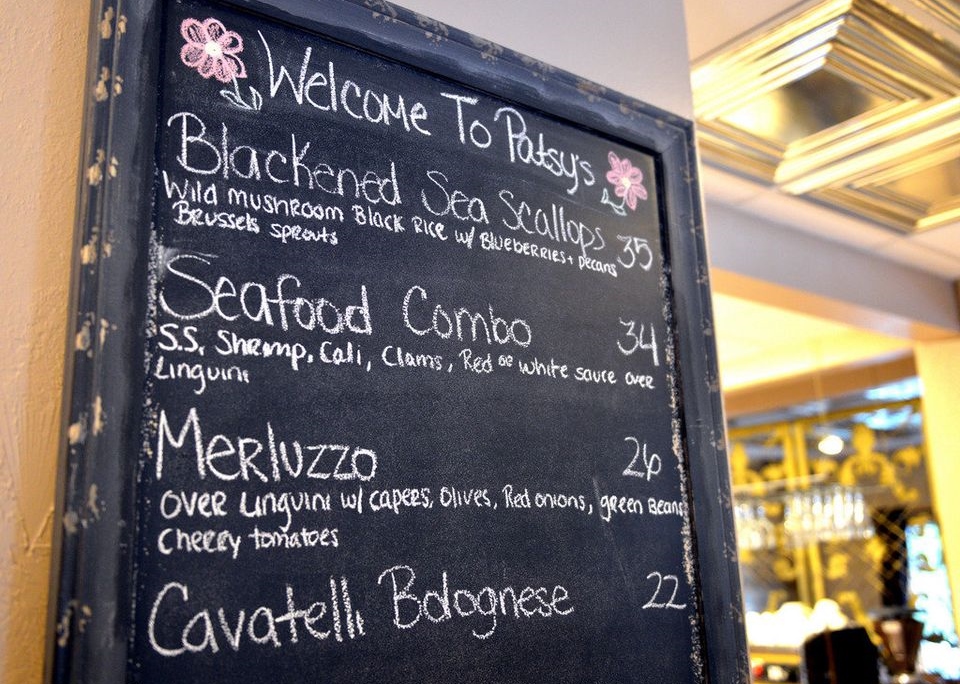 Welcome To Patsy's
Blackened Sea Scallops 35
Wild mushroom Black Rice w/ Blueberries + Pecans
Brussels sprouts
Seafood Combo 34
S.S. Shrimp, Cali, Clams, Red or white sauce over
Linguini
Merluzzo 26
over Linguini w/ capers, Olives, Red onions, green Beans
Cherry tomatoes
Cavatelli Bolognese 22